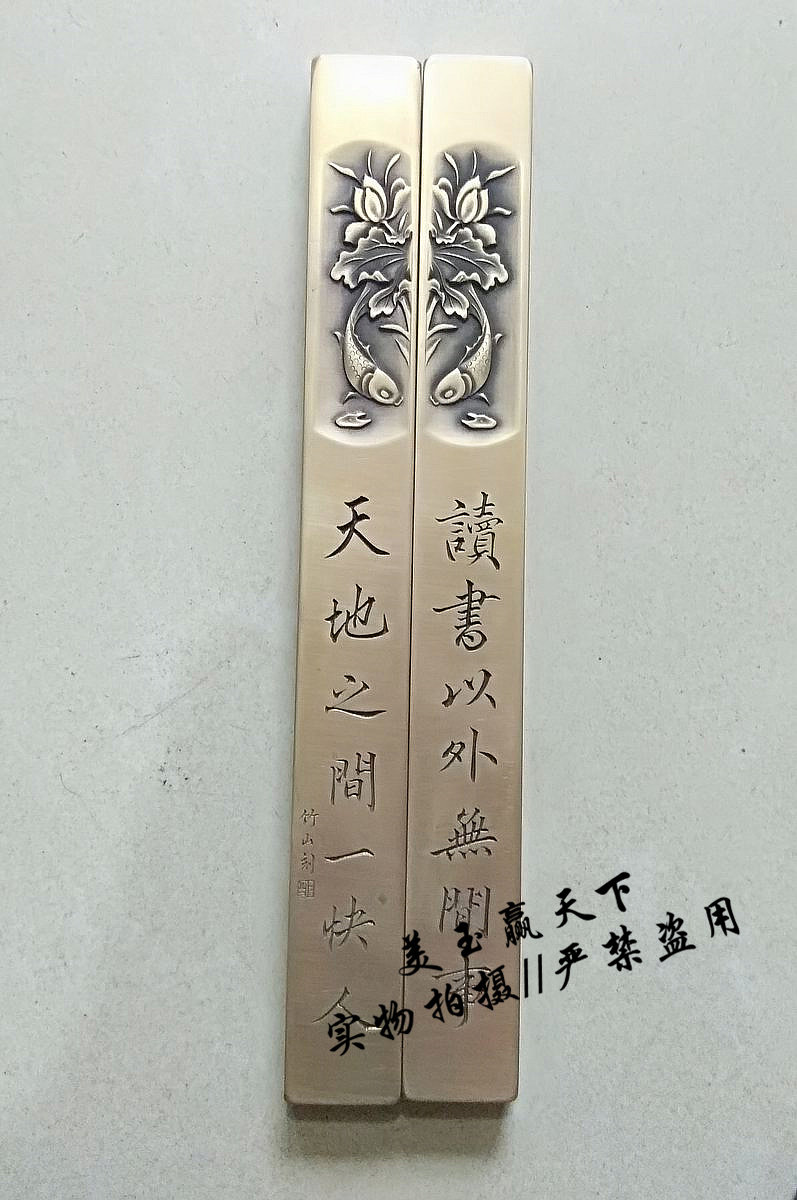 讀書以外無閒事
天地之間一快人
竹山刻
美玉赢天下
实物拍摄||严禁盗用